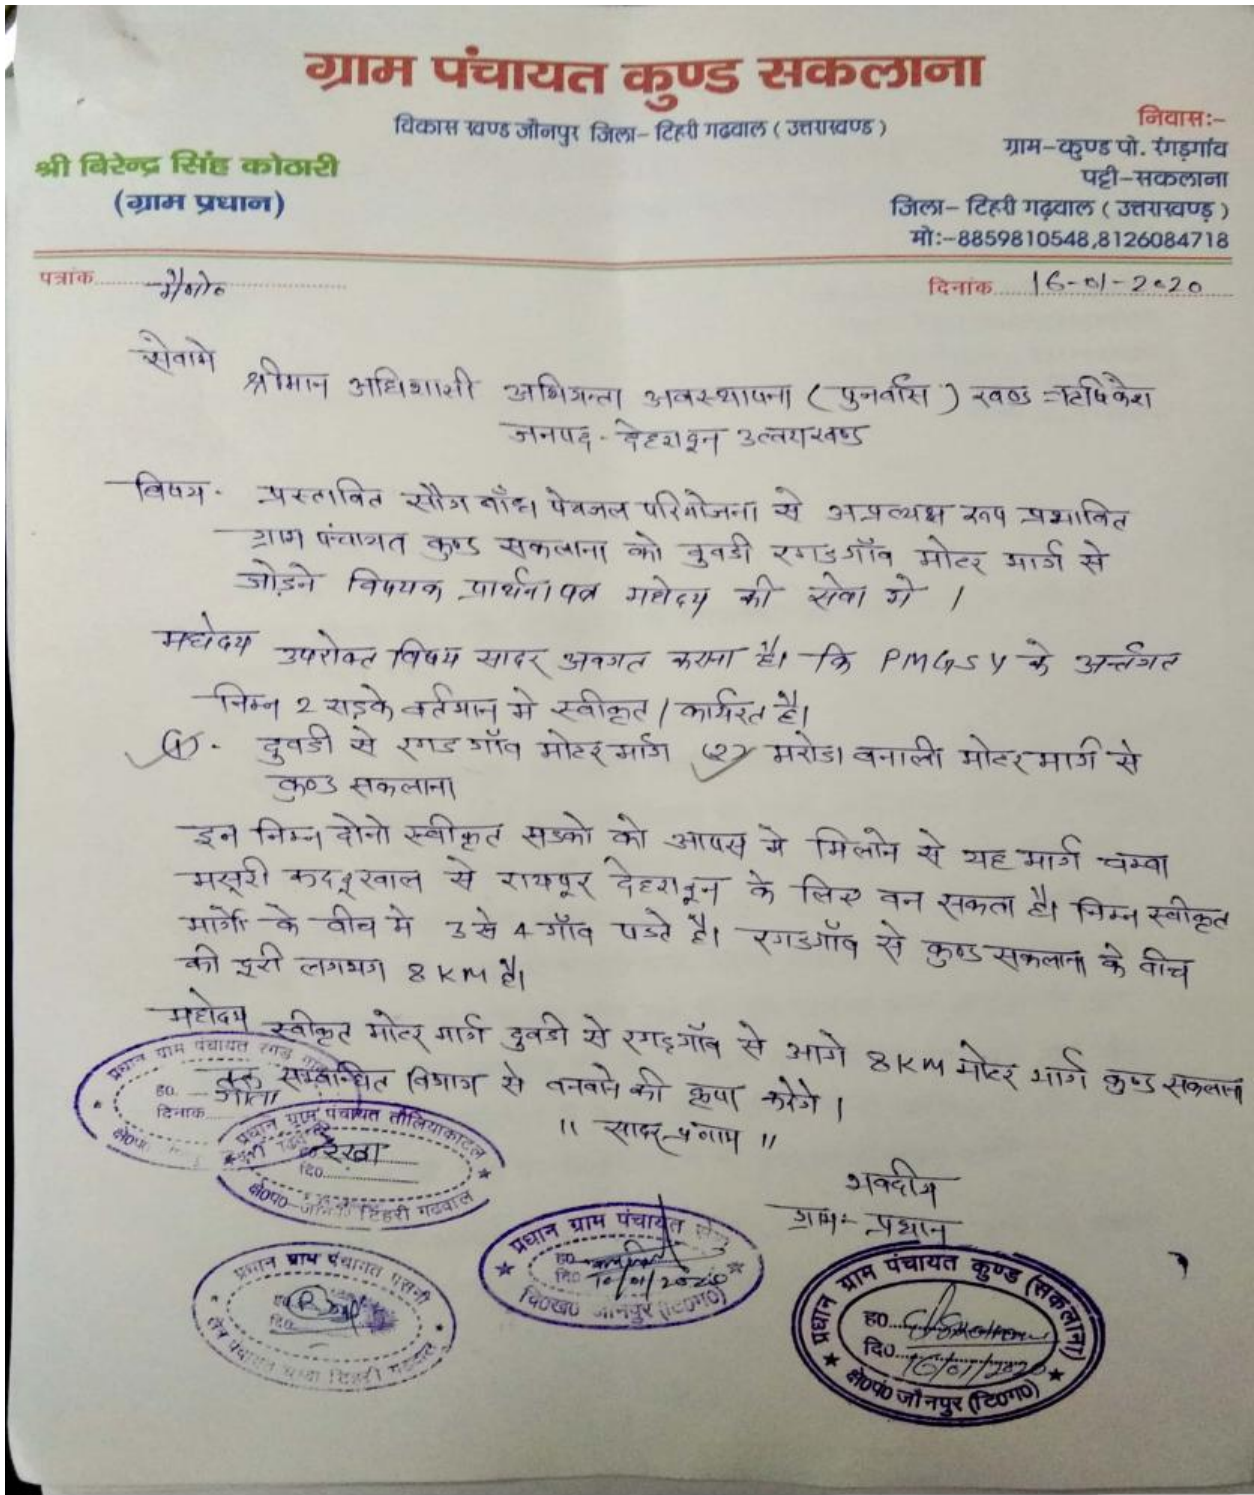 ग्राम पंचायत कुण्ड सकलाना
विकास खण्ड जौनपुर जिला- टिहरी गढवाल ( उत्तराखण्ड )
श्री बिरेन्द्र सिंह कोठारी
(ग्राम प्रधान)
निवास:-
ग्राम-कुण्ड पो. रंगड़गांव
पट्टी-सकलाना
जिला- टिहरी गढ़वाल ( उत्तराखण्ड़ )
मो:-8859810548,8126084718
पत्रांक
दिनांक 16-01-2020
सेवामे
श्रीमान अधिशासी अभियन्ता अवस्थापना ( पुनर्वास ) खण्ड ऋषिकेश
जनपद - देहरादून उत्तराखण्ड
विषय - प्रस्तावित सौंग बाँध पेयजल परियोजना से अप्रत्यक्ष रूप प्रभावित
ग्राम पंचायत कुण्ड सकलाना को दुवडी रगडगाँव मोटर मार्ग से
जोड़ने विषयक प्रार्थना पत्र महोदय की सेवा मे ।
महोदय उपरोक्त विषय सादर अवगत करना है। कि PMGSY के अर्न्तगत
निम्न 2 सड़के वर्तमान मे स्वीकृत / कार्यरत है।
(1)- दुवडी से रगड गाँव मोटर मार्ग (2) मरोडा बनाली मोटर मार्ग से
कुण्ड सकलाना
इन निम्न दोनो स्वीकृत सडको को आपस मे मिलाने से यह मार्ग चम्बा
मसूरी कद्दूखाल से रायपुर देहरादून के लिए बन सकता है। निम्न स्वीकृत
मार्गो के बीच मे 3 से 4 गाँव पडते है। रगडगाँव से कुण्ड सकलाना के बीच
की दूरी लगभग 8 KM है।
महोदय स्वीकृत मोटर मार्ग दुवडी से रगडगाँव से आगे 8KM मोटर मार्ग कुण्ड सकलाना
तक सम्बन्धित विभाग से बनवाने की कृपा करेंगे ।
॥ सादर प्रणाम ॥
प्रधान ग्राम पंचायत रगड
ह0 गीता
दिनांक
प्रधान ग्राम पंचायत तौलियाकाटल
रेखा
दि0
क्षे0पं0 टिहरी गढवाल
भवदीय
ग्राम - प्रधान
प्रधान ग्राम पंचायत
ह0
दि0 16/01/2020
वि0ख0 जौनपुर (टि0ग0)
प्रधान ग्राम पंचायत
ह0
दि0
टिहरी गढवाल
प्रधान ग्राम पंचायत कुण्ड (सकलाना)
ह0
दि0 16/01/2020
क्षे0पं0 जौनपुर (टि0ग0)